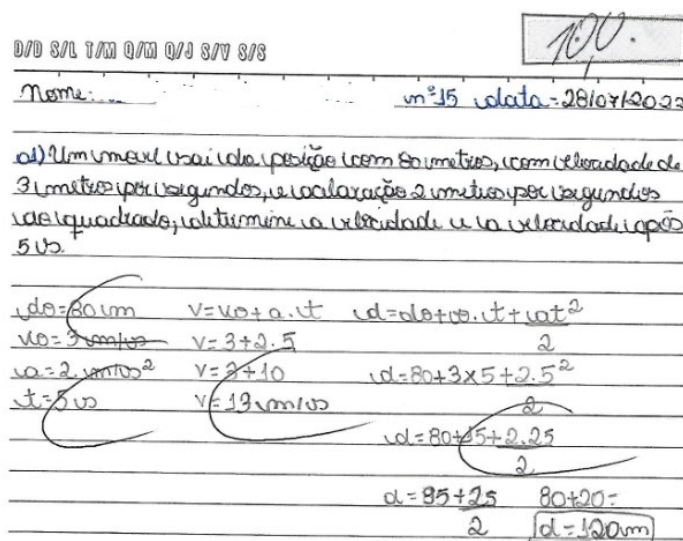 10,0.
D/D S/L T/M Q/M Q/J S/V S/S
Nome: nº 15 data = 28/07/2023
01) Um movel sai da posição com 80 metros, com velocidade de
3 metros por segundos, e acalaração 2 metros por segundos
ao quadrado, determine a velocidade e a velocidade após
5 s.
do = 80 m v = vo + a . t d = do + vo . t + at²
vo = 3 m/s v = 3 + 2 . 5 2
a = 2 . m/s² v = 3 + 10 d = 80 + 3 x 5 + 2 . 5²
t = 5 s v = 13 m/s 2
d = 80 + 15 + 2 . 25
2
d = 95 + 25 80 + 20 =
2 d = 120 m